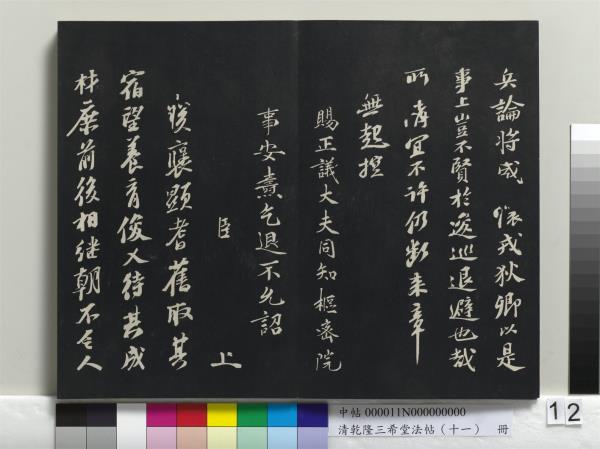 兵論將威懷戎狄卿以是
事上豈不賢於逡巡退避也哉
所請宜不許仍斷來章
無起
賜正議大夫同知樞密院
事安燾乞退不允詔
臣 上
朕襃顯耆舊取其
宿望養育俊乂待其成
材庶前後相继朝不乏人
12
中帖 000011N000000000
清乾隆三希堂法帖（十一） 冊